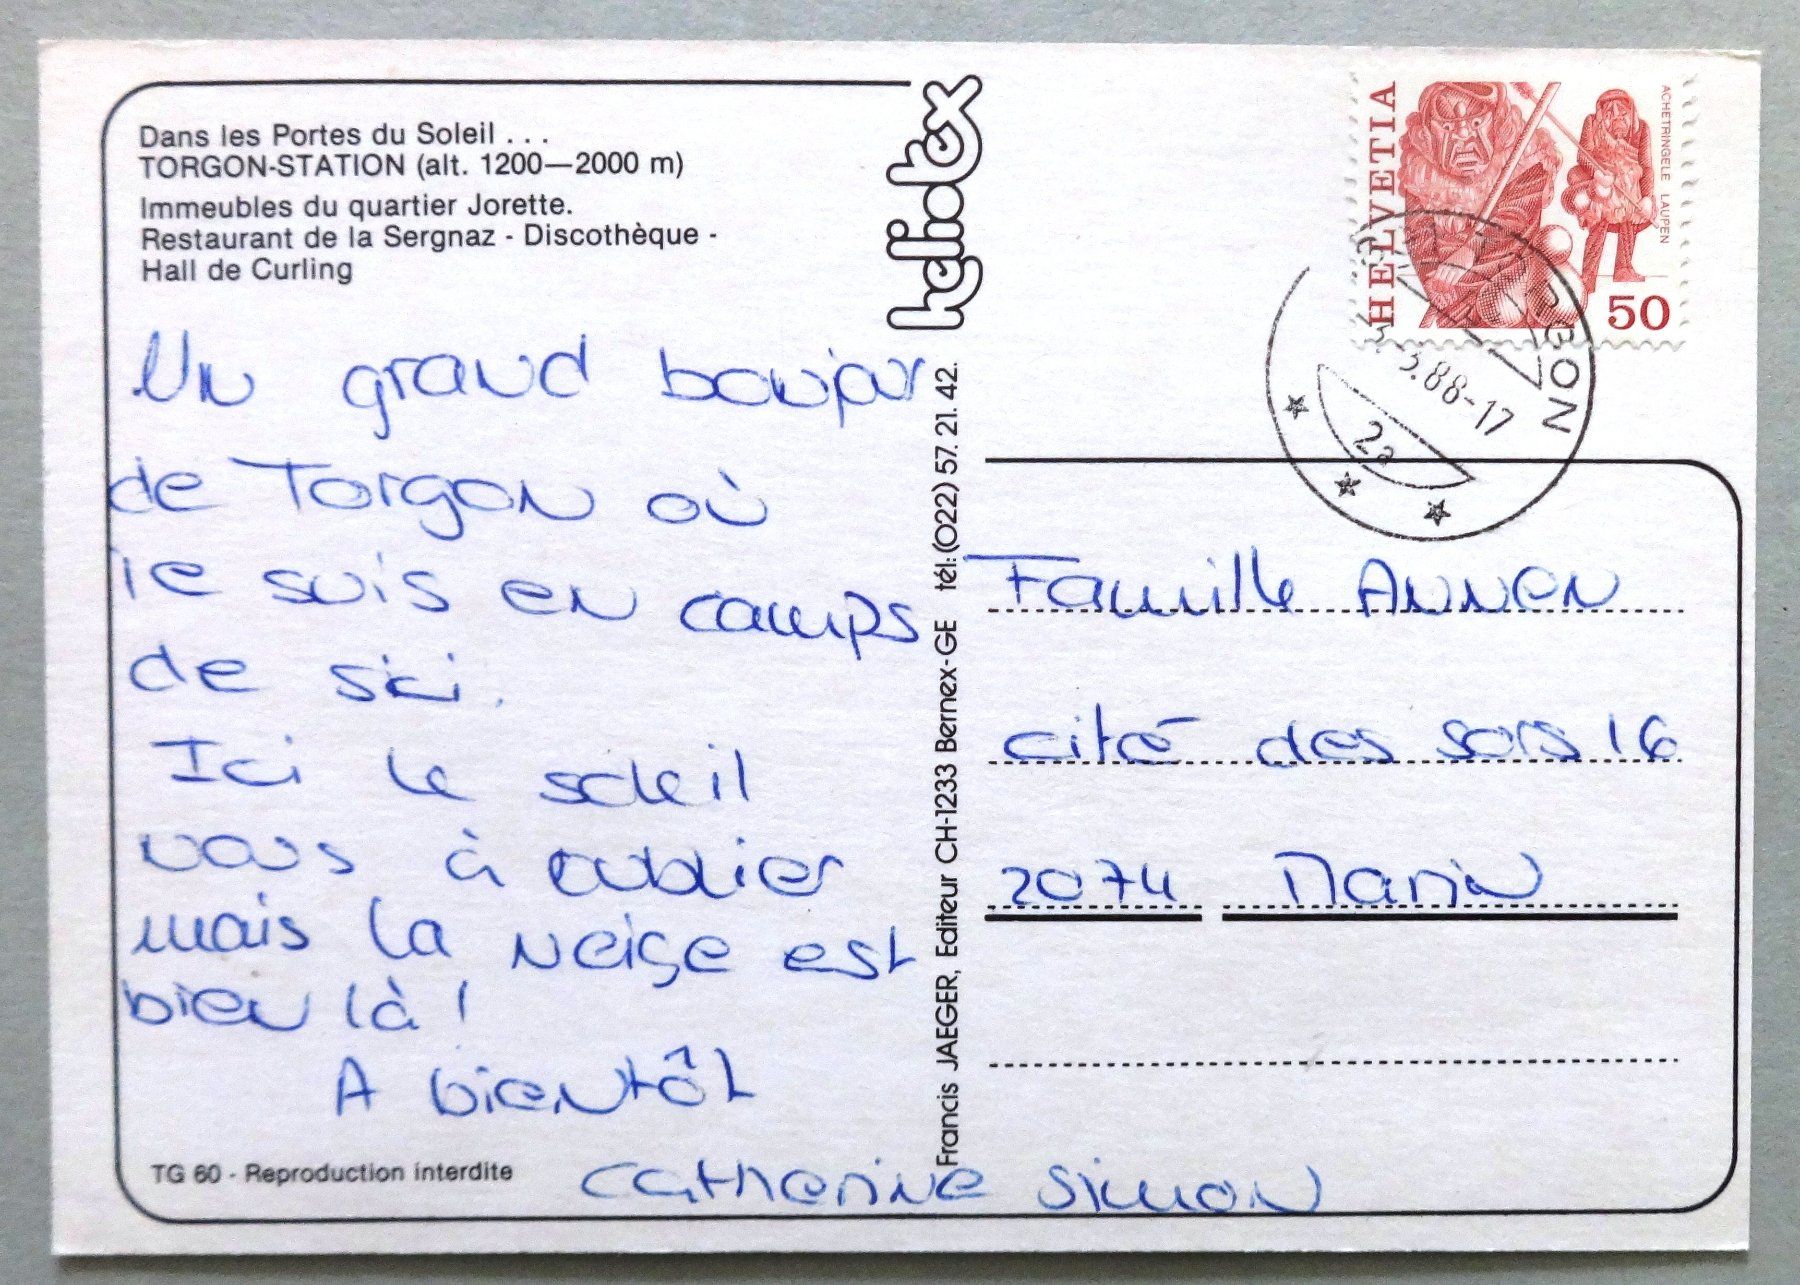 Dans les Portes du Soleil . . .
TORGON-STATION (alt. 1200—2000 m)
Immeubles du quartier Jorette.
Restaurant de la Sergnaz - Discothèque -
Hall de Curling
Un grand bonjour
de Torgon où
je suis en camps
de ski.
Ici le soleil
vous à oublier
mais la neige est
bien là !
A bientôt
Catherine Simon
TG 60 - Reproduction interdite
heliotex
Francis JAEGER, Editeur CH-1233 Bernex-GE tél: (022) 57. 21. 42.
HELVETIA
ACHETRINGELE LAUPEN
50
TORGON
.3.88-17
2a
Famille ANNEN
cité des sors 16
2074 Marin